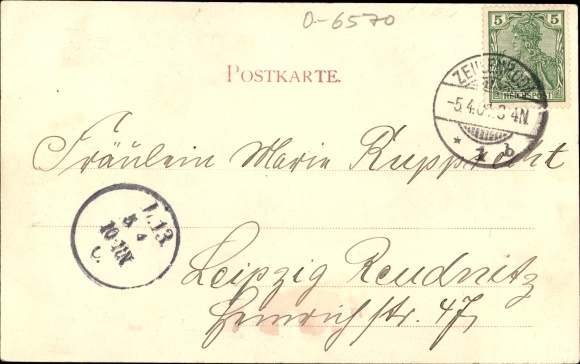 D-6570
5 5
REICHSPOST
POSTKARTE.
-5.4.0 3-4N.
* 1 b
Fräulein Marie Rupprecht
L.13.
5 4
10-11N.
Leipzig Reudnitz
Heinrichstr. 47,